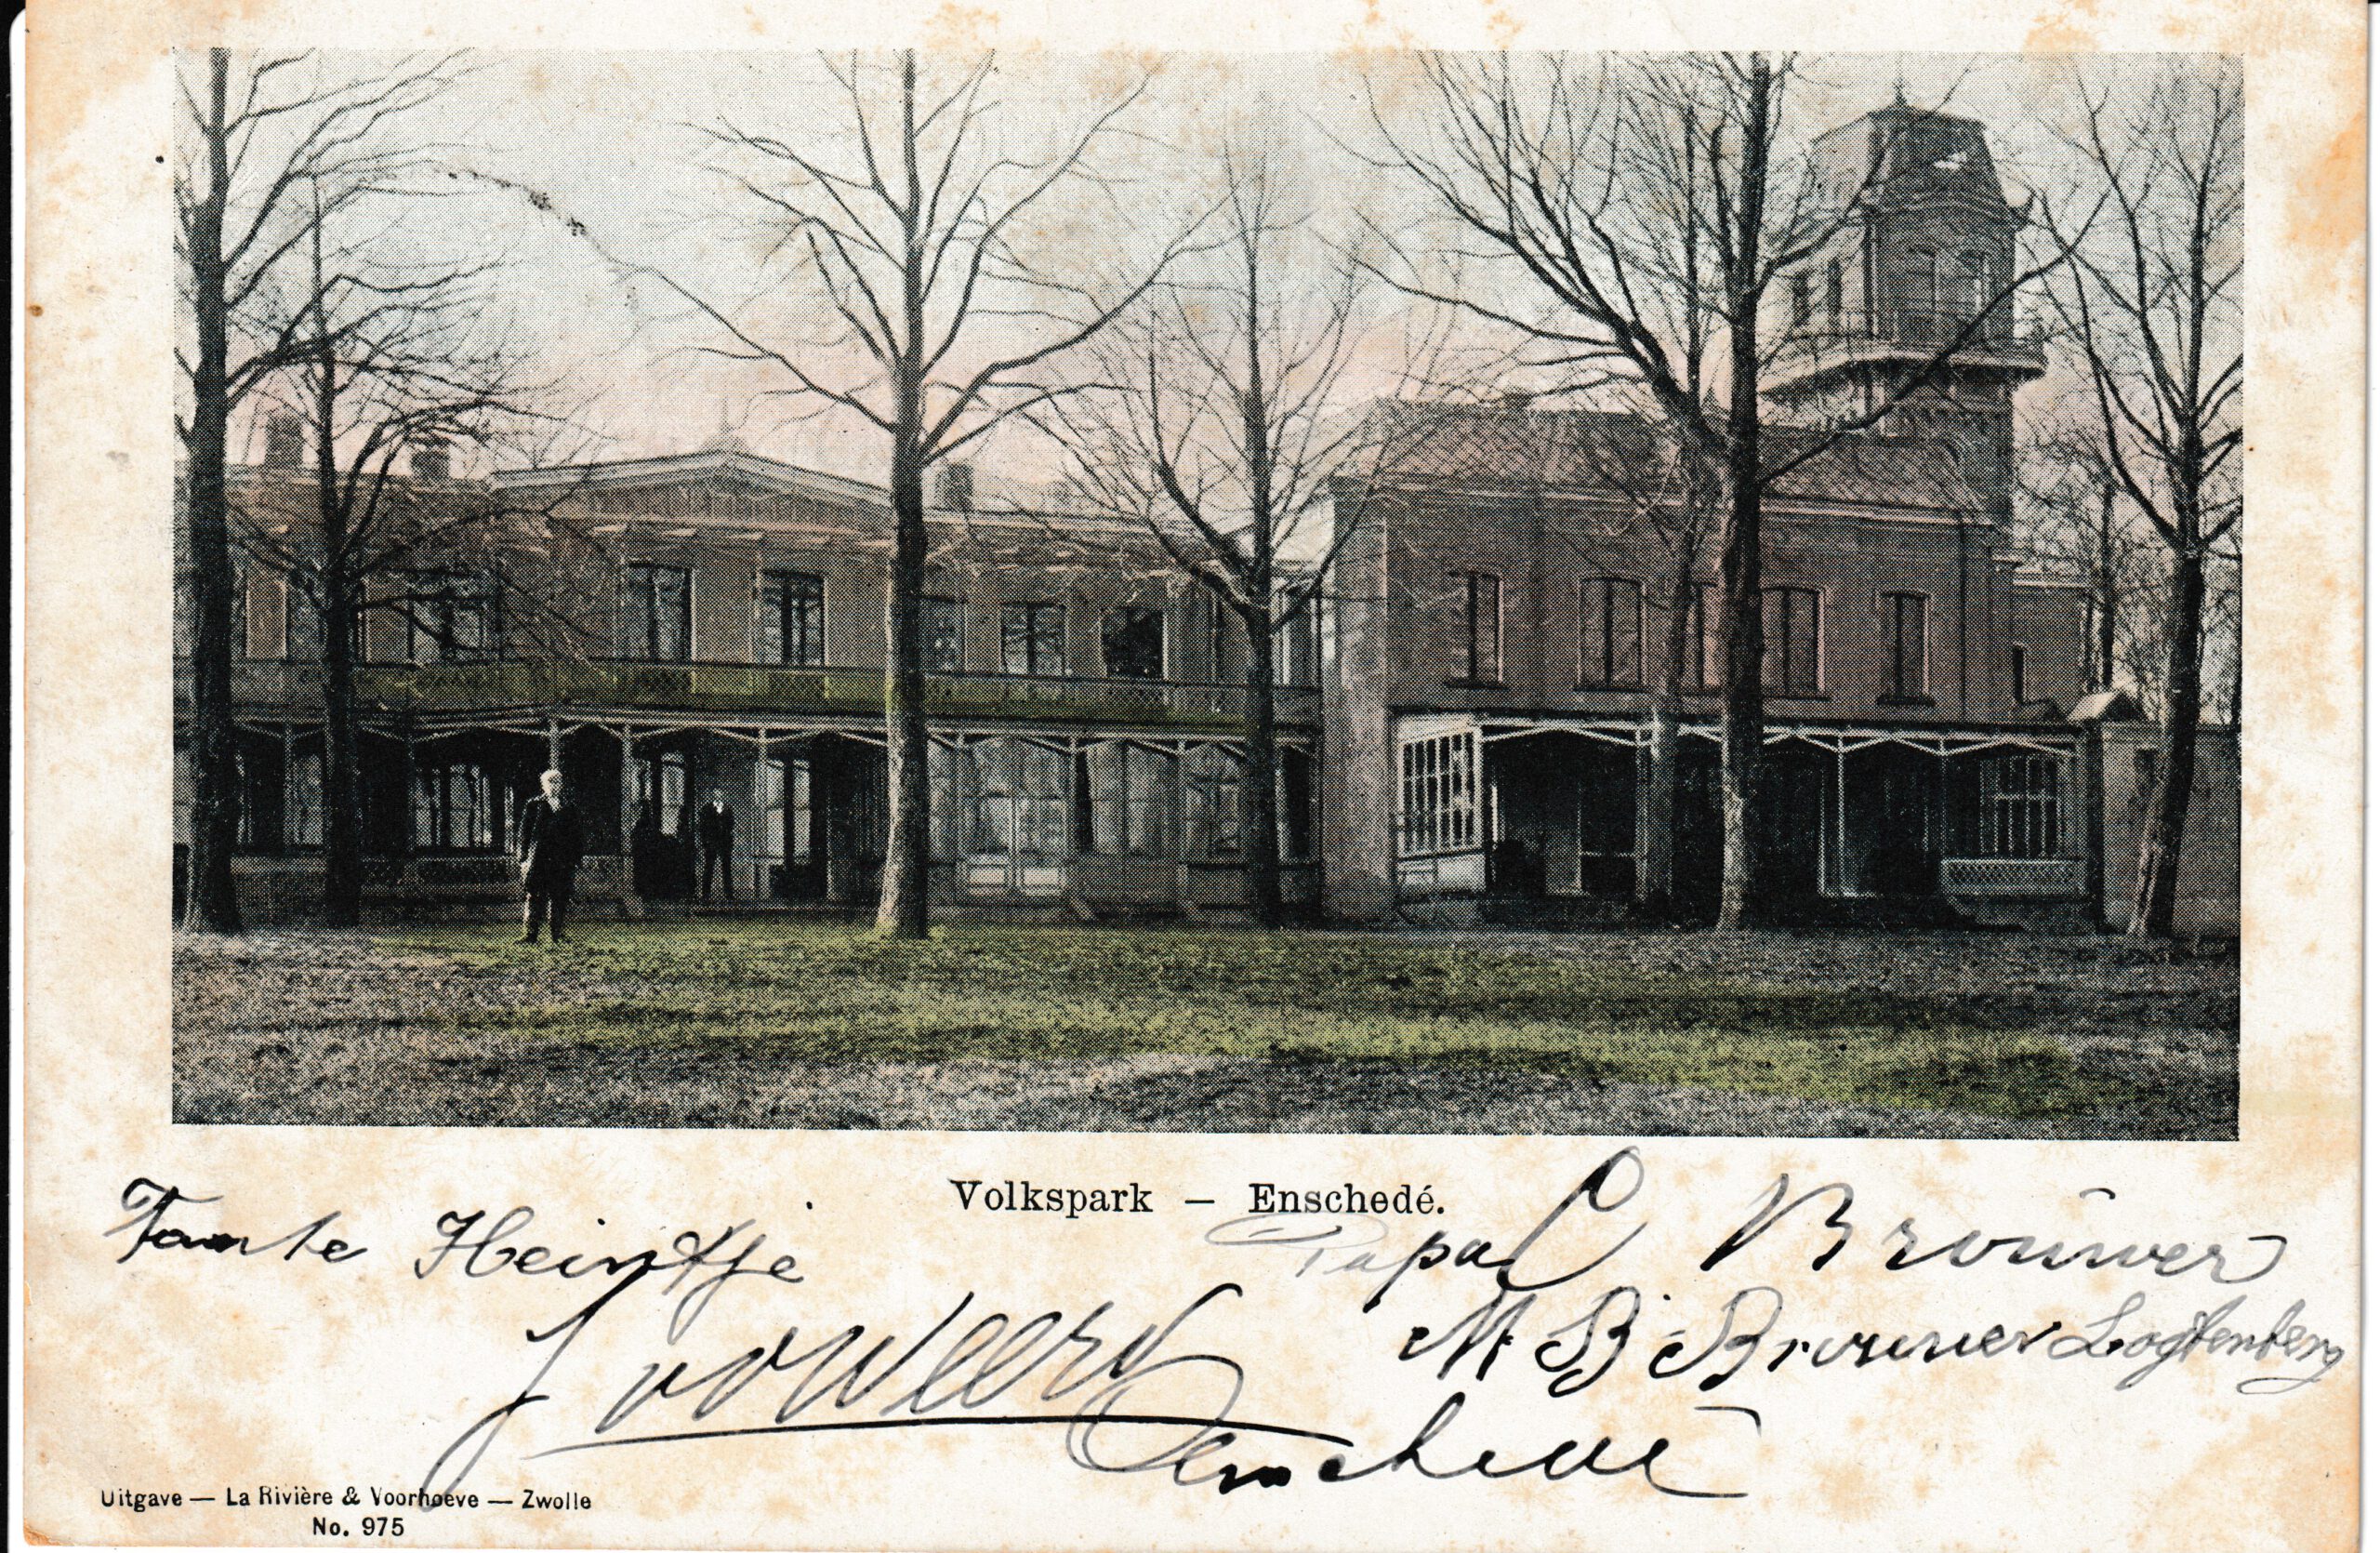 Volkspark — Enschedé.
Tante Heintje
Papa C Brouwer
M B Brouwer Logtenberg
Enschede
Uitgave — La Rivière & Voorhoeve — Zwolle
No. 975